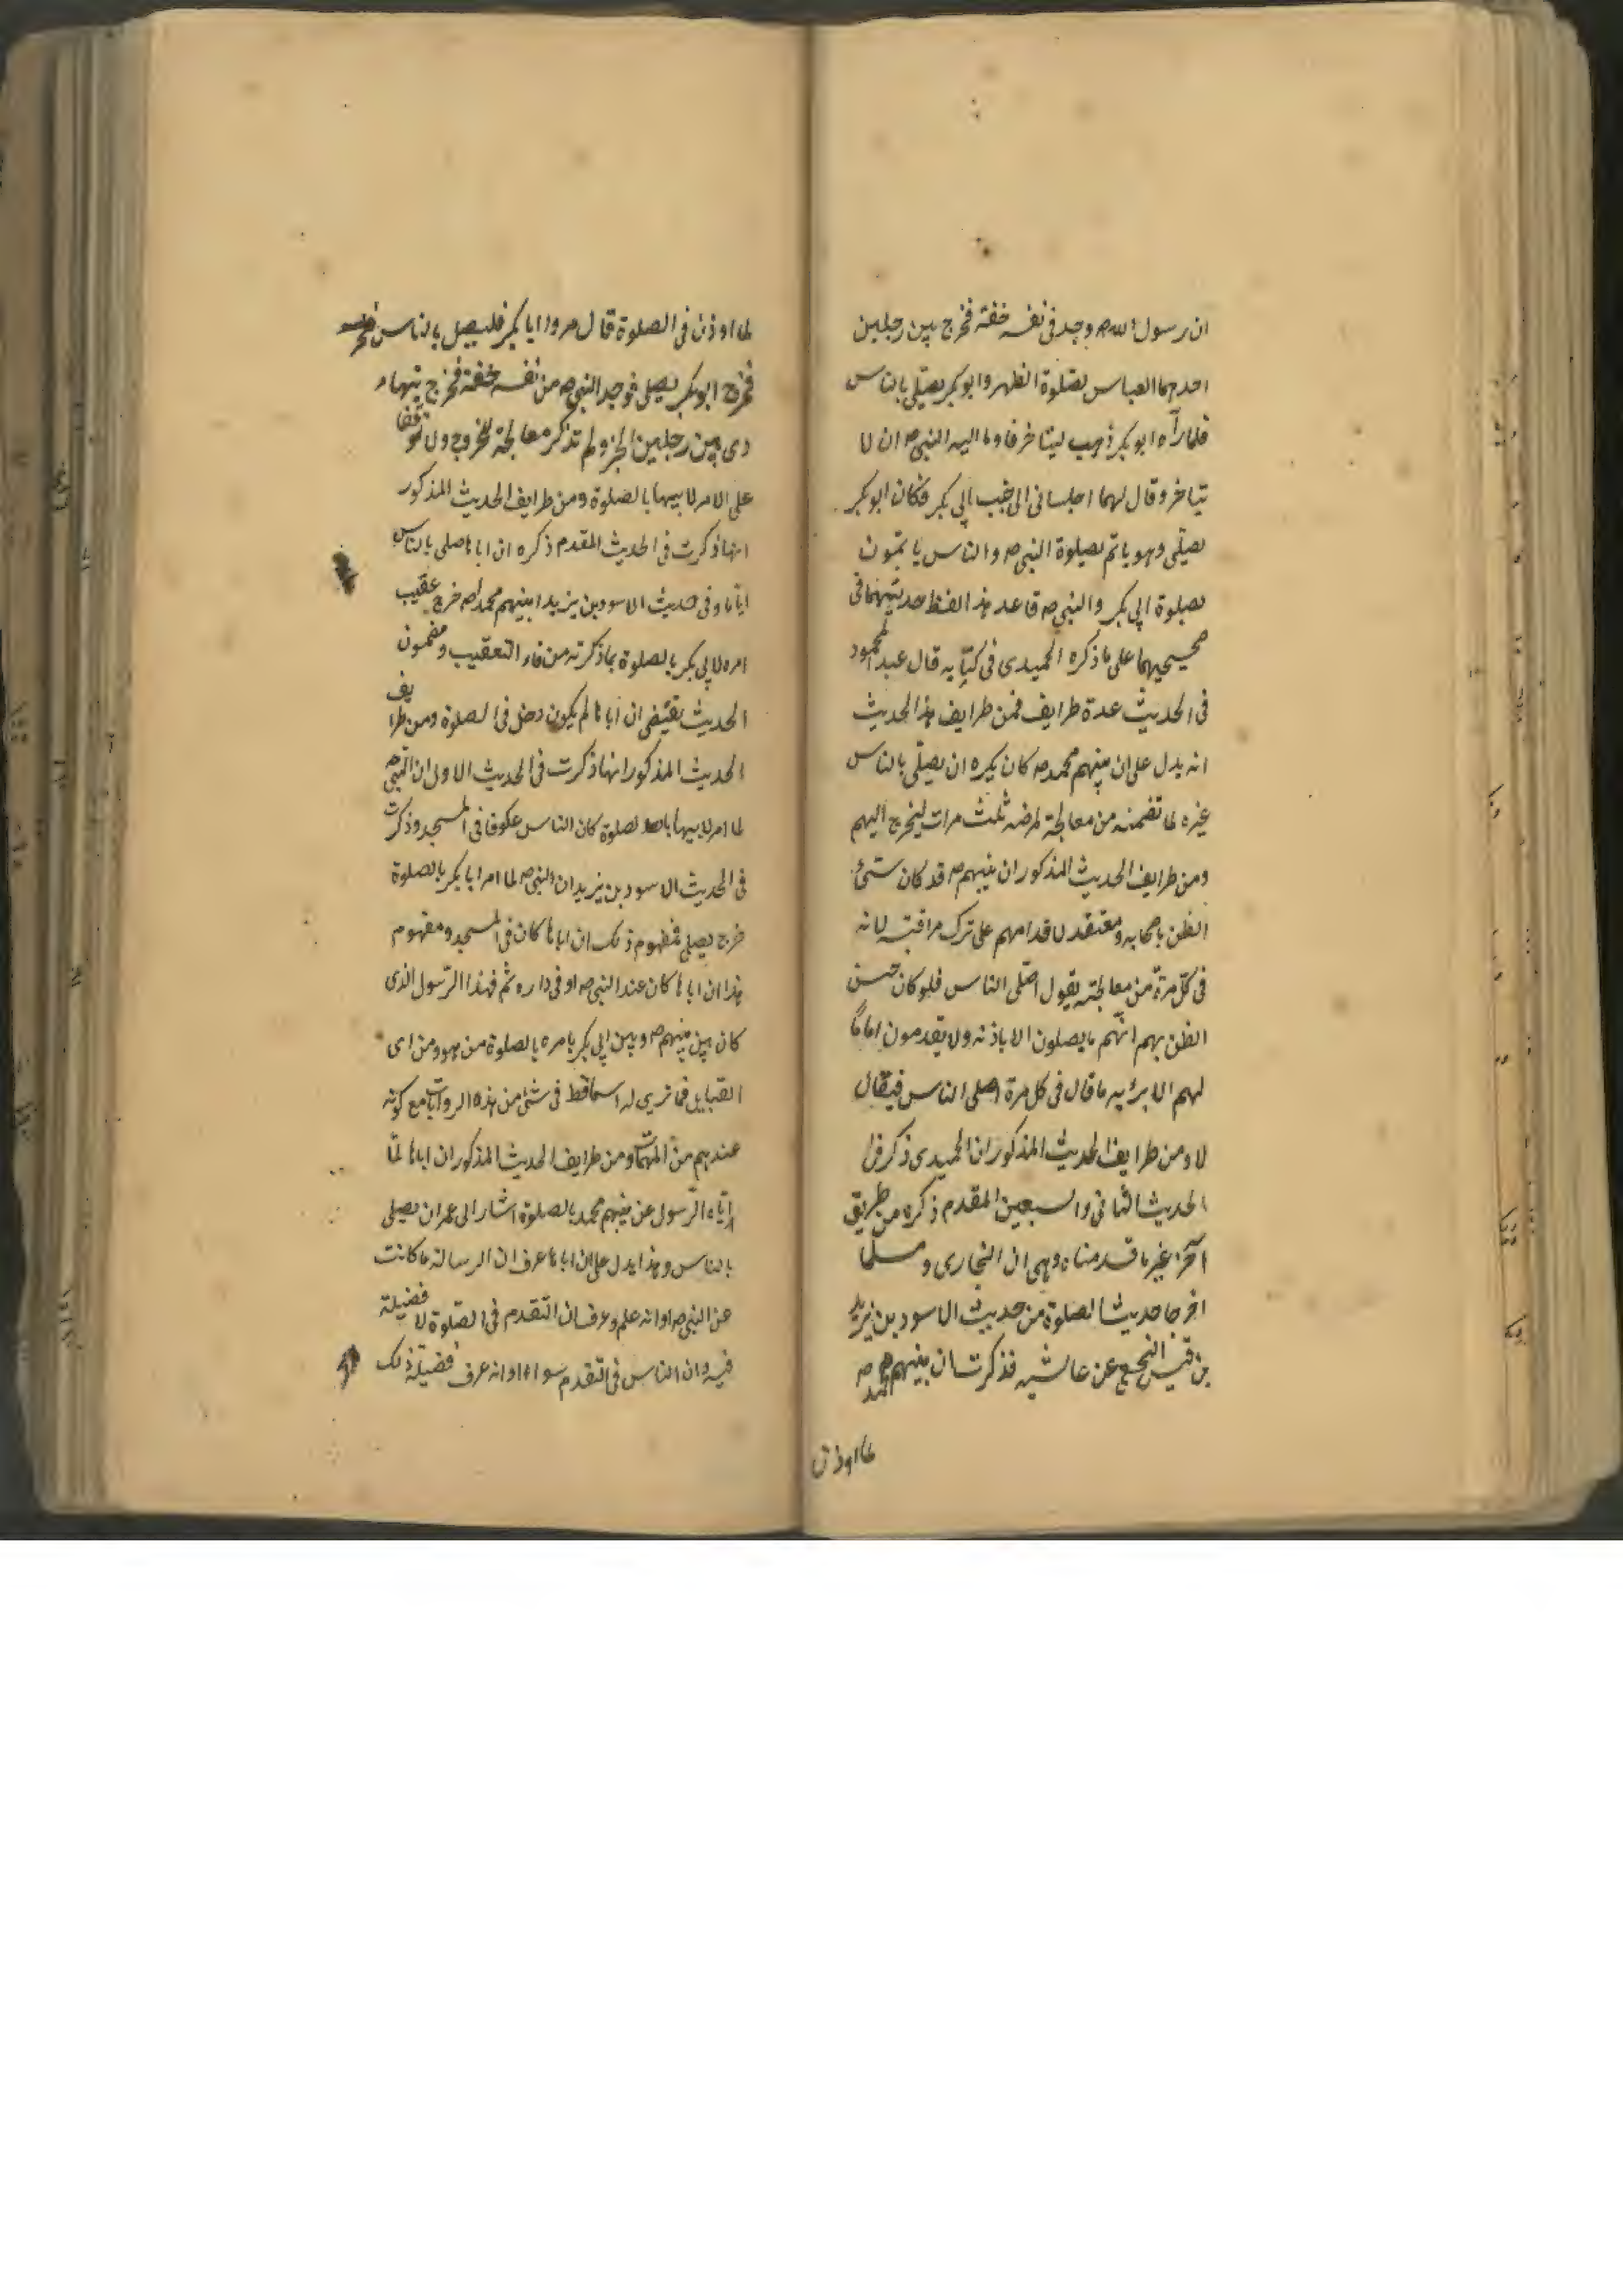 ان رسول الله ص وجد فى نفسه خفة فخرج بين رجلين
احدهما العباس لصلوة الظهر وابو بكر يصلى بالناس
فلما رآه ابو بكر ذهب ليتاخر فاوما اليه النبى ص ان لا
يتاخر وقال لهما اجلسانى الى جنب ابى بكر فكان ابو بكر
يصلى وهو ياتم بصلوة النبى ص والناس ياتمون
بصلوة ابى بكر والنبى ص قاعد هذا لفظ حديثهما فى
صحيحيهما على ما ذكره الحميدى فى كتابه قال عبد المحمود
فى الحديث عدة طرايف فمن طرايف هذا الحديث
انه يدل على ان نبيهم محمد ص كان يكره ان يصلى بالناس
غيره لما تضمنه من معالجة لمرضه ثلث مرات ليخرج اليهم
ومن طرايف الحديث المذكور ان نبيهم ص قد كان سيئ
الظن باصحابه ومعتقد لاقدامهم على ترك مراقبته لانه
فى كل مرة من معالجته يقول اصلى الناس فلو كان حسن
الظن بهم انهم ما يصلون الا باذنه ولا يقدمون اماما
لهم الا برأيه ما قال فى كل مرة اصلى الناس فيقال
لا ومن طرايف الحديث المذكور ان الحميدى ذكر فى
الحديث الثانى والسبعين المقدم ذكره من طريق
آخر غير ما قدمناه وهى ان البخارى ومسلما
اخرجا حديث الصلوة من حديث الاسود بن يزيد
بن قيس النخعى عن عائشه فذكرت ان نبيهم محمد ص
لما اوذن
لما اوذن فى الصلوة قال مروا ابا بكر فليصل بالناس
فخرج ابو بكر يصلى فوجد النبى ص من نفسه خفة فخرج يتهاد
دى بين رجلين الخبر ولم تذكر معالجة للخروج ولا توقفا
على الامر لابيها بالصلوة ومن طرايف الحديث المذكور
انها ذكرت فى الحديث المقدم ذكره ان اباها صلى بالناس
اياما وفى حديث الاسود بن يزيد ان نبيهم محمدا ص خرج عقيب
امره لابى بكر بالصلوة بما ذكرته من فاء التعقيب ومضمون
الحديث يقتضى ان اباها لم يكون دخل فى الصلوة ومن طرايف
الحديث المذكور انها ذكرت فى الحديث الاول ان النبى ص
لما امر لابيها بالصلوة كان الناس عكوفا فى المسجد وذكرت
فى الحديث الاسود بن يزيد ان النبى ص لما امر ابا بكر بالصلوة
خرج يصلى فمفهوم ذلك ان اباها كان فى المسجد ومفهوم
هذا ان اباها كان عند النبى ص او فى داره ثم فهذا الرسول الذى
كان بين نبيهم ص وبين ابى بكر يامره بالصلوة من هو ومن اى
القبايل فما نرى له اسما قط فى شئ من هذه الروايات مع كونه
عندهم من المهمات ومن طرايف الحديث المذكور ان اباها لما
اتاه الرسول عن نبيهم محمد بالصلوة اشار الى عمر ان يصلى
بالناس وهذا يدل على ان اباها عرف ان الرسالة ما كانت
عن النبى ص او انه علم وعرف ان التقدم فى الصلوة لا فضيلة
فيه وان الناس فى التقدم سواء او انه عرف فضيلة ذلك